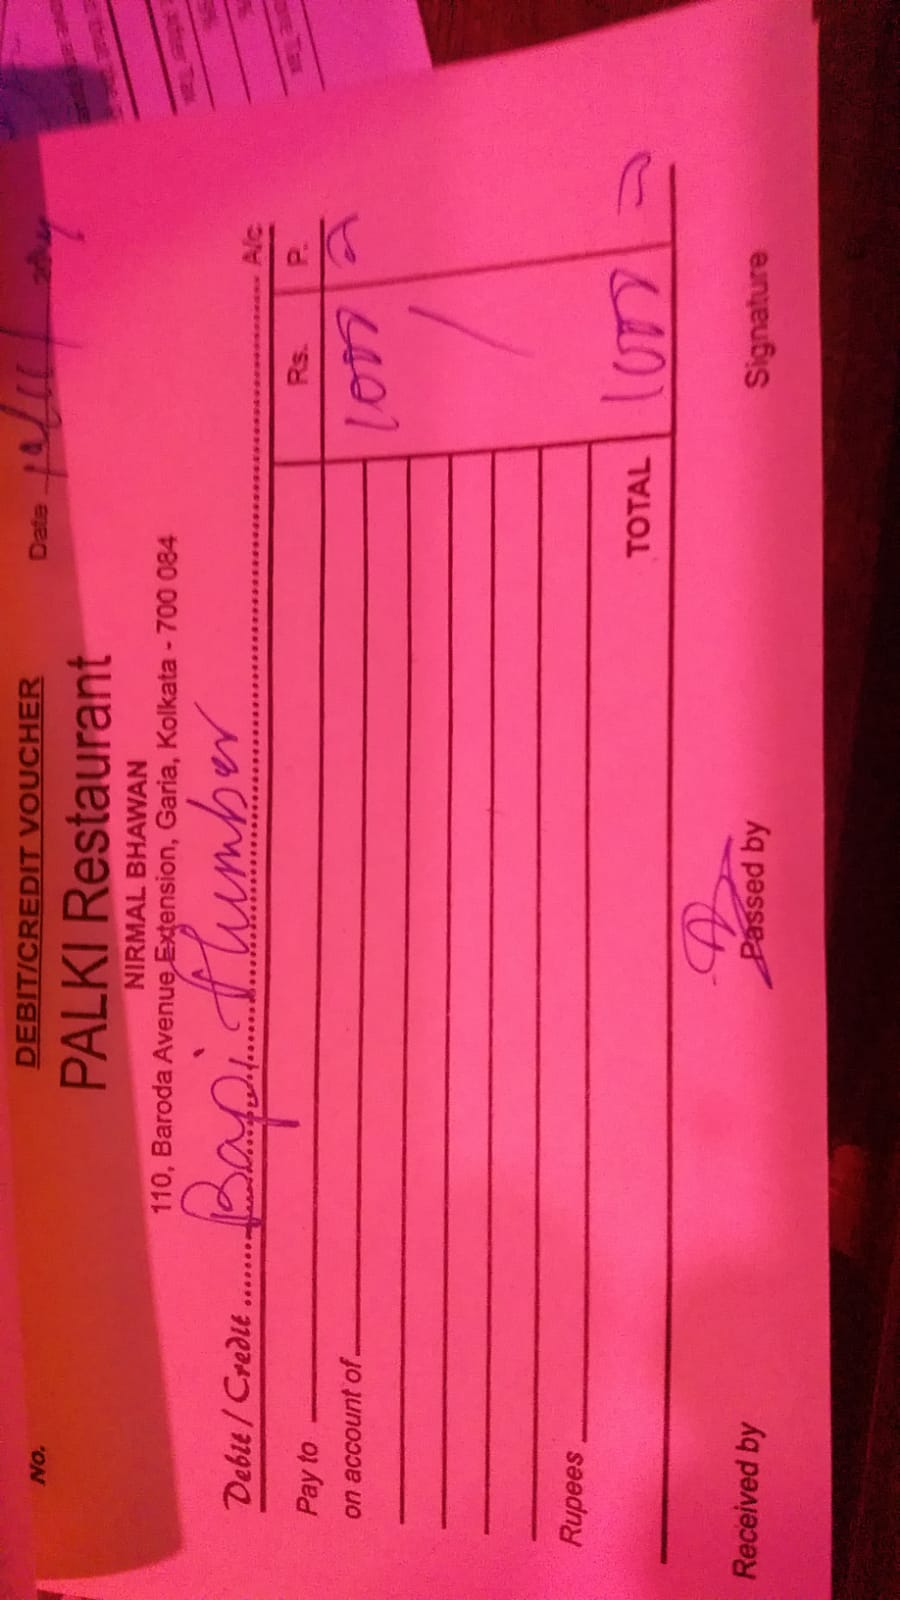 DEBIT/CREDIT VOUCHER
No. Date
PALKI Restaurant
NIRMAL BHAWAN
110, Baroda Avenue Extension, Garia, Kolkata - 700 084
Debit / Credit Bapi Plumber A/c
Pay to Rs. P.
on account of 1000
Rupees
TOTAL 1000
Received by Passed by Signature